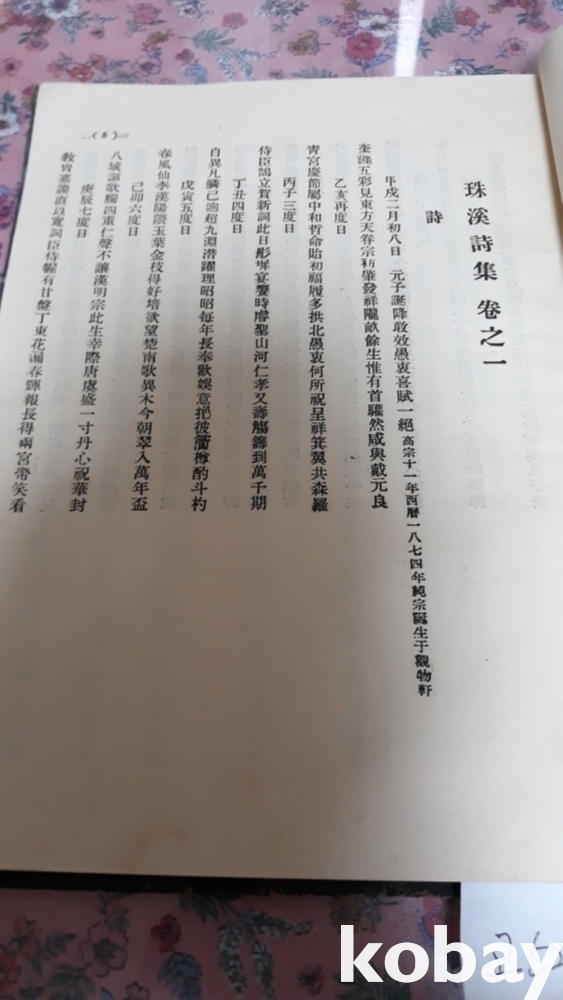 珠溪詩集 卷之一
詩
年戌二月初八日 元子誕降敢效愚衷喜賦一絕 高宗十一年西曆一八七四年純宗誕生于觀物軒
奎躔五彩見東方天眷宗祊肇發祥隴畝餘生惟有首驩然咸與戴元良
乙亥再度日
靑宮慶節屬中和哲命貽初福履多拱北愚衷何所祝呈祥箕翼共森羅
丙子三度日
侍臣鵠立賀新詞此日彤墀宴饗時睿聖山河仁孝又壽觴籌到萬千期
丁丑四度日
自異凡鱗己遄超九淵潛躍理昭昭每年長奉歡娛意挹彼衢樽酌斗杓
戊寅五度日
春風仙李漢陽隈玉葉金枝得好培欲望楚南歌異木今朝翠入萬年盃
己卯六度日
八域謳歌騰四重仁聲不讓漢明宗此生幸際唐虞盛一寸丹心祝華封
庚辰七度日
敎冑嘉謨直以寬詞臣侍幄有甘盤丁東花漏春暉報長得兩宮帶笑看
(5)
kobay